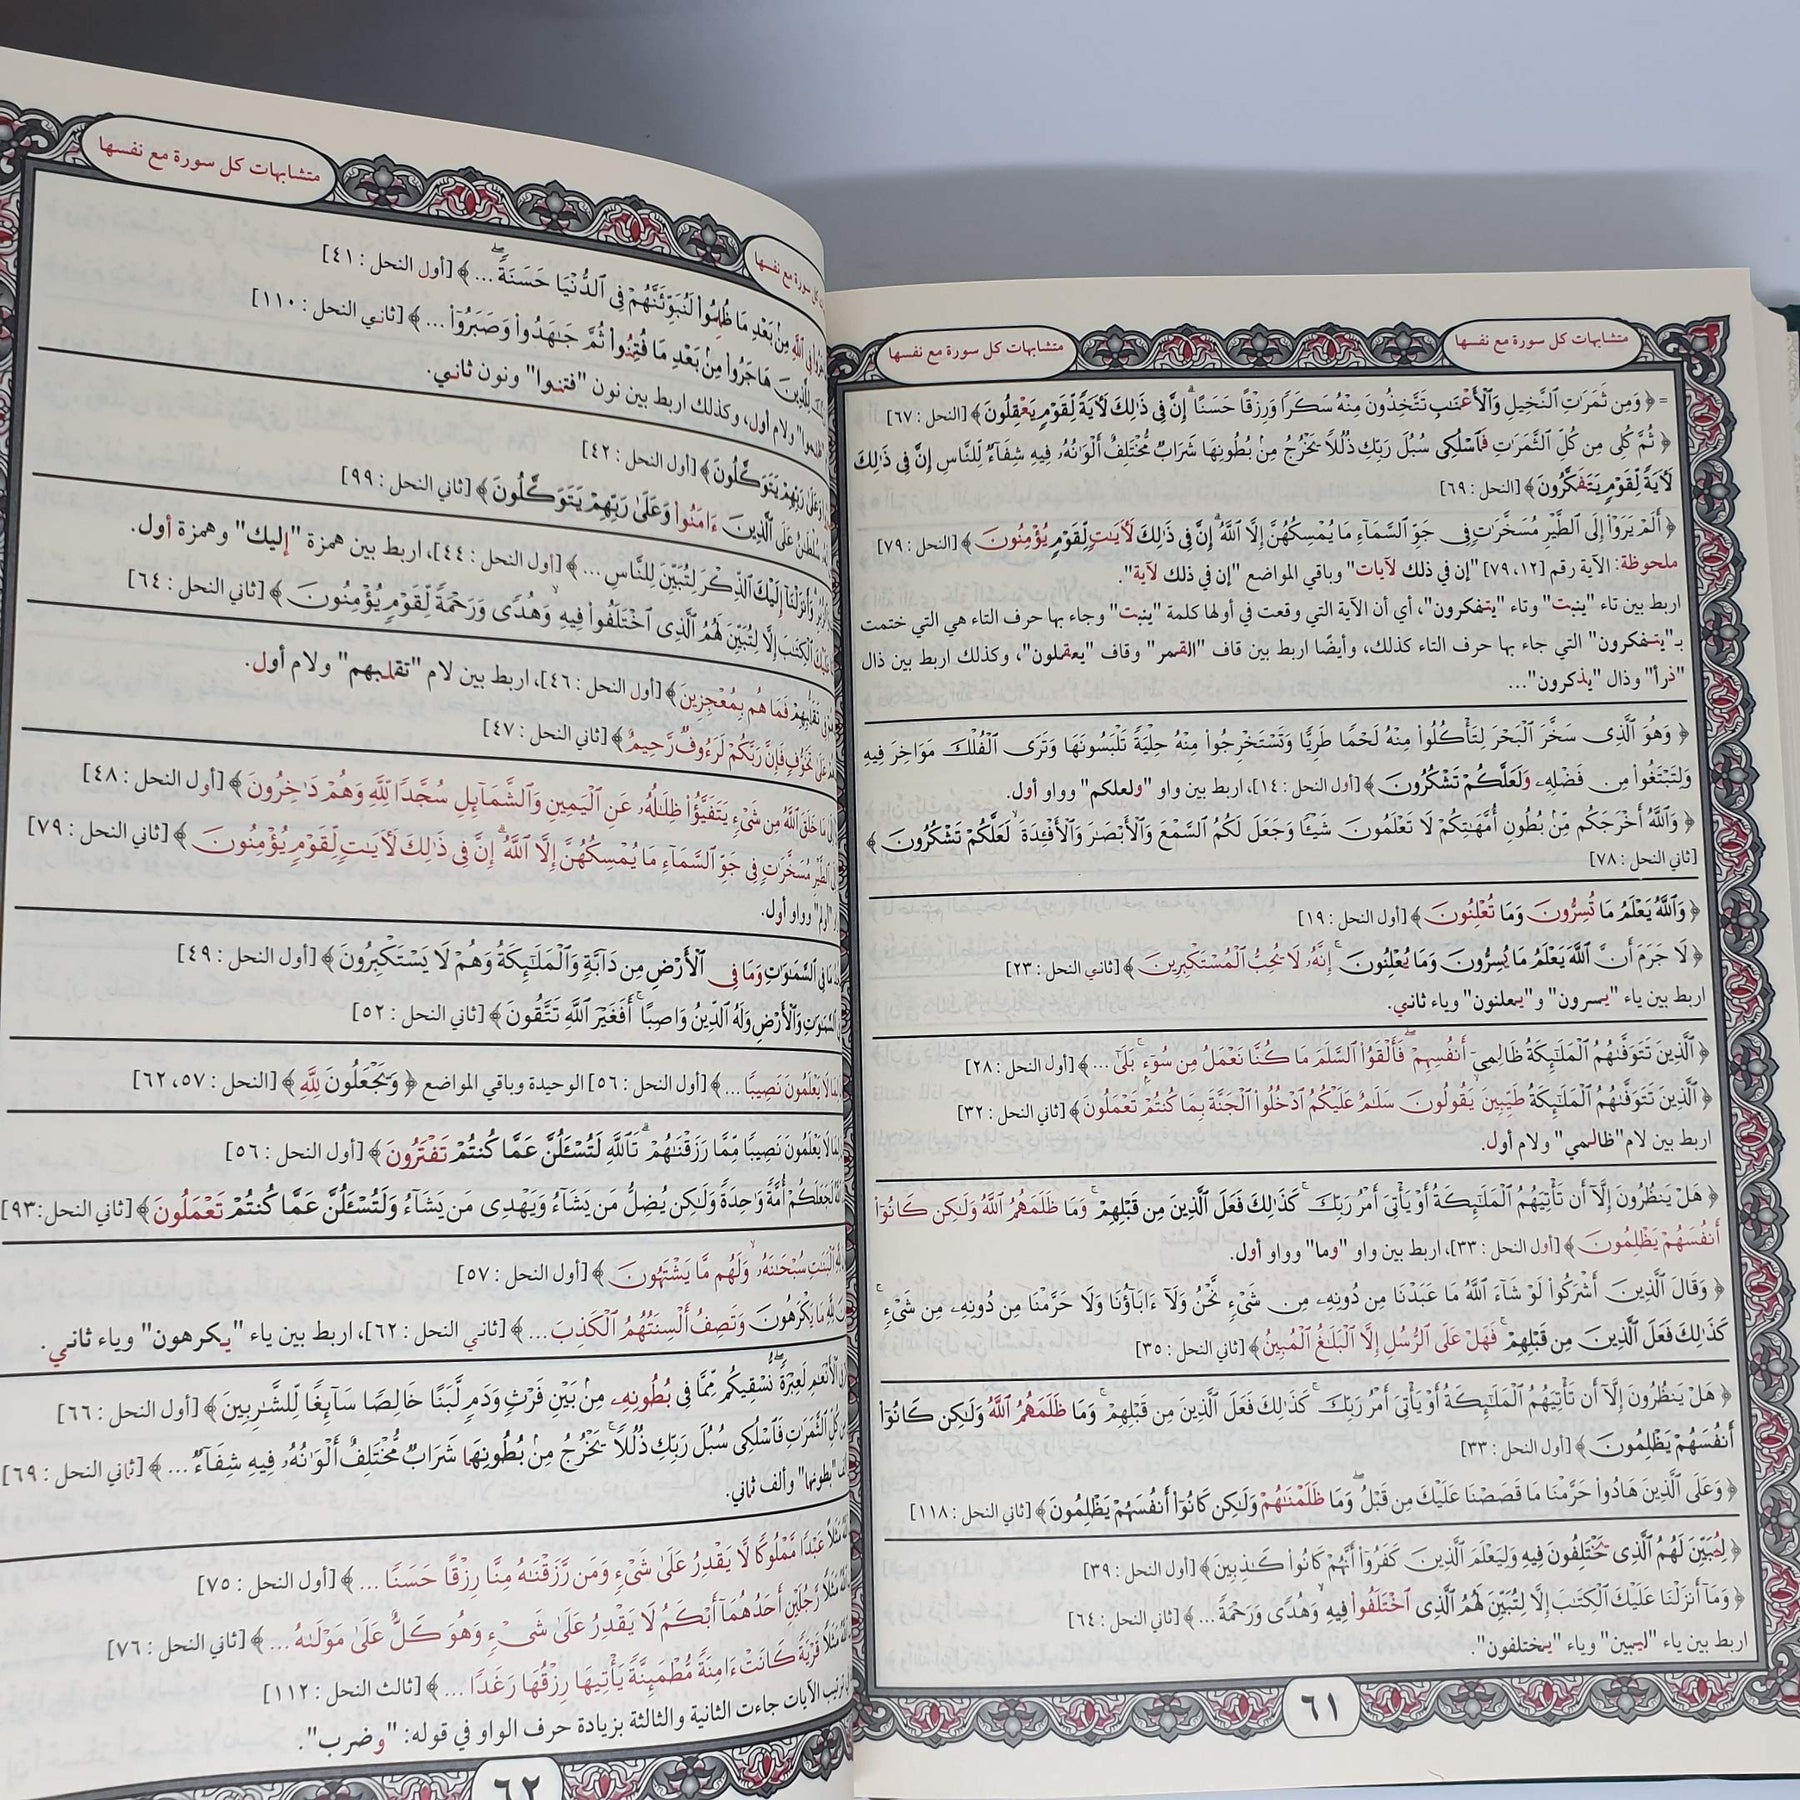 متشابهات كل سورة مع نفسها
متشابهات كل سورة مع نفسها
= ﴿ وَمِن ثَمَرَٰتِ ٱلنَّخِيلِ وَٱلْأَعْنَٰبِ تَتَّخِذُونَ مِنْهُ سَكَرًا وَرِزْقًا حَسَنًا ۗ إِنَّ فِى ذَٰلِكَ لَءَايَةً لِّقَوْمٍ يَعْقِلُونَ ﴾ [النحل : ٦٧]
﴿ ثُمَّ كُلِى مِن كُلِّ ٱلثَّمَرَٰتِ فَٱسْلُكِى سُبُلَ رَبِّكِ ذُلُلًا ۚ يَخْرُجُ مِنۢ بُطُونِهَا شَرَابٌ مُّخْتَلِفٌ أَلْوَٰنُهُۥ فِيهِ شِفَآءٌ لِّلنَّاسِ ۗ إِنَّ فِى ذَٰلِكَ
لَءَايَةً لِّقَوْمٍ يَتَفَكَّرُونَ ﴾ [النحل : ٦٩]
﴿ أَلَمْ يَرَوْا۟ إِلَى ٱلطَّيْرِ مُسَخَّرَٰتٍ فِى جَوِّ ٱلسَّمَآءِ مَا يُمْسِكُهُنَّ إِلَّا ٱللَّهُ ۗ إِنَّ فِى ذَٰلِكَ لَءَايَٰتٍ لِّقَوْمٍ يُؤْمِنُونَ ﴾ [النحل : ٧٩]
ملحوظة: الآية رقم [١٢، ٧٩] "إن في ذلك لآيات" وباقي المواضع "إن في ذلك لآية".
اربط بين تاء "ينبت" وتاء "يتفكرون"، أي أن الآية التي وقعت في أولها كلمة "ينبت" وجاء بها حرف التاء هي التي ختمت
بـ"يتفكرون" التي جاء بها حرف التاء كذلك، وأيضًا اربط بين قاف "القمر" وقاف "يعقلون"، وكذلك اربط بين ذال
"ذرأ" وذال "يذكرون"...
﴿ وَهُوَ ٱلَّذِى سَخَّرَ ٱلْبَحْرَ لِتَأْكُلُوا۟ مِنْهُ لَحْمًا طَرِيًّا وَتَسْتَخْرِجُوا۟ مِنْهُ حِلْيَةً تَلْبَسُونَهَا وَتَرَى ٱلْفُلْكَ مَوَاخِرَ فِيهِ
وَلِتَبْتَغُوا۟ مِن فَضْلِهِۦ وَلَعَلَّكُمْ تَشْكُرُونَ ﴾ [أول النحل : ١٤]، اربط بين واو "ولعلكم" وواو أول.
﴿ وَٱللَّهُ أَخْرَجَكُم مِّنۢ بُطُونِ أُمَّهَٰتِكُمْ لَا تَعْلَمُونَ شَيْـًٔا وَجَعَلَ لَكُمُ ٱلسَّمْعَ وَٱلْأَبْصَٰرَ وَٱلْأَفْـِٔدَةَ ۙ لَعَلَّكُمْ تَشْكُرُونَ ﴾
[ثاني النحل : ٧٨]
﴿ وَٱللَّهُ يَعْلَمُ مَا تُسِرُّونَ وَمَا تُعْلِنُونَ ﴾ [أول النحل : ١٩]
﴿ لَا جَرَمَ أَنَّ ٱللَّهَ يَعْلَمُ مَا يُسِرُّونَ وَمَا يُعْلِنُونَ ۚ إِنَّهُۥ لَا يُحِبُّ ٱلْمُسْتَكْبِرِينَ ﴾ [ثاني النحل : ٢٣]
اربط بين ياء "يسرون" و"يعلنون" وياء ثاني.
﴿ ٱلَّذِينَ تَتَوَفَّىٰهُمُ ٱلْمَلَٰٓئِكَةُ ظَالِمِىٓ أَنفُسِهِمْ ۖ فَأَلْقَوُا۟ ٱلسَّلَمَ مَا كُنَّا نَعْمَلُ مِن سُوٓءٍۭ ۚ بَلَىٰٓ ... ﴾ [أول النحل : ٢٨]
﴿ ٱلَّذِينَ تَتَوَفَّىٰهُمُ ٱلْمَلَٰٓئِكَةُ طَيِّبِينَ ۙ يَقُولُونَ سَلَٰمٌ عَلَيْكُمُ ٱدْخُلُوا۟ ٱلْجَنَّةَ بِمَا كُنتُمْ تَعْمَلُونَ ﴾ [ثاني النحل : ٣٢]
اربط بين لام "ظالمي" ولام أول.
﴿ هَلْ يَنظُرُونَ إِلَّآ أَن تَأْتِيَهُمُ ٱلْمَلَٰٓئِكَةُ أَوْ يَأْتِىَ أَمْرُ رَبِّكَ ۚ كَذَٰلِكَ فَعَلَ ٱلَّذِينَ مِن قَبْلِهِمْ ۚ وَمَا ظَلَمَهُمُ ٱللَّهُ وَلَٰكِن كَانُوٓا۟
أَنفُسَهُمْ يَظْلِمُونَ ﴾ [أول النحل : ٣٣]، اربط بين واو "وما" وواو أول.
﴿ وَقَالَ ٱلَّذِينَ أَشْرَكُوا۟ لَوْ شَآءَ ٱللَّهُ مَا عَبَدْنَا مِن دُونِهِۦ مِن شَىْءٍ نَّحْنُ وَلَآ ءَابَآؤُنَا وَلَا حَرَّمْنَا مِن دُونِهِۦ مِن شَىْءٍ ۚ
كَذَٰلِكَ فَعَلَ ٱلَّذِينَ مِن قَبْلِهِمْ ۚ فَهَلْ عَلَى ٱلرُّسُلِ إِلَّا ٱلْبَلَٰغُ ٱلْمُبِينُ ﴾ [ثاني النحل : ٣٥]
﴿ هَلْ يَنظُرُونَ إِلَّآ أَن تَأْتِيَهُمُ ٱلْمَلَٰٓئِكَةُ أَوْ يَأْتِىَ أَمْرُ رَبِّكَ ۚ كَذَٰلِكَ فَعَلَ ٱلَّذِينَ مِن قَبْلِهِمْ ۚ وَمَا ظَلَمَهُمُ ٱللَّهُ وَلَٰكِن كَانُوٓا۟
أَنفُسَهُمْ يَظْلِمُونَ ﴾ [أول النحل : ٣٣]
﴿ وَعَلَى ٱلَّذِينَ هَادُوا۟ حَرَّمْنَا مَا قَصَصْنَا عَلَيْكَ مِن قَبْلُ ۖ وَمَا ظَلَمْنَٰهُمْ وَلَٰكِن كَانُوٓا۟ أَنفُسَهُمْ يَظْلِمُونَ ﴾ [ثاني النحل : ١١٨]
﴿ لِيُبَيِّنَ لَهُمُ ٱلَّذِى يَخْتَلِفُونَ فِيهِ وَلِيَعْلَمَ ٱلَّذِينَ كَفَرُوٓا۟ أَنَّهُمْ كَانُوا۟ كَٰذِبِينَ ﴾ [أول النحل : ٣٩]
﴿ وَمَآ أَنزَلْنَا عَلَيْكَ ٱلْكِتَٰبَ إِلَّا لِتُبَيِّنَ لَهُمُ ٱلَّذِى ٱخْتَلَفُوا۟ فِيهِ ۙ وَهُدًى وَرَحْمَةً ... ﴾ [ثاني النحل : ٦٤]
اربط بين ياء "ليبين" وياء "يختلفون".
٦١
متشابهات كل سورة مع نفسها
كل سورة مع نفسها
ٱللَّهِ مِنۢ بَعْدِ مَا ظُلِمُوا۟ لَنُبَوِّئَنَّهُمْ فِى ٱلدُّنْيَا حَسَنَةً ۖ ... ﴾ [أول النحل : ٤١]
لِلَّذِينَ هَاجَرُوا۟ مِنۢ بَعْدِ مَا فُتِنُوا۟ ثُمَّ جَٰهَدُوا۟ وَصَبَرُوٓا۟ ... ﴾ [ثاني النحل : ١١٠]
"ظلموا" ولام أول، وكذلك اربط بين نون "فتنوا" ونون ثاني.
وَعَلَىٰ رَبِّهِمْ يَتَوَكَّلُونَ ﴾ [أول النحل : ٤٢]
سُلْطَٰنٌ عَلَى ٱلَّذِينَ ءَامَنُوا۟ وَعَلَىٰ رَبِّهِمْ يَتَوَكَّلُونَ ﴾ [ثاني النحل : ٩٩]
وَأَنزَلْنَآ إِلَيْكَ ٱلذِّكْرَ لِتُبَيِّنَ لِلنَّاسِ ... ﴾ [أول النحل : ٤٤]، اربط بين همزة "إليك" وهمزة أول.
عَلَيْكَ ٱلْكِتَٰبَ إِلَّا لِتُبَيِّنَ لَهُمُ ٱلَّذِى ٱخْتَلَفُوا۟ فِيهِ ۙ وَهُدًى وَرَحْمَةً لِّقَوْمٍ يُؤْمِنُونَ ﴾ [ثاني النحل : ٦٤]
فِى تَقَلُّبِهِمْ فَمَا هُم بِمُعْجِزِينَ ﴾ [أول النحل : ٤٦]، اربط بين لام "تقلبهم" ولام أول.
عَلَىٰ تَخَوُّفٍ فَإِنَّ رَبَّكُمْ لَرَءُوفٌ رَّحِيمٌ ﴾ [ثاني النحل : ٤٧]
مَا خَلَقَ ٱللَّهُ مِن شَىْءٍ يَتَفَيَّؤُا۟ ظِلَٰلُهُۥ عَنِ ٱلْيَمِينِ وَٱلشَّمَآئِلِ سُجَّدًا لِّلَّهِ وَهُمْ دَٰخِرُونَ ﴾ [أول النحل : ٤٨]
ٱلطَّيْرِ مُسَخَّرَٰتٍ فِى جَوِّ ٱلسَّمَآءِ مَا يُمْسِكُهُنَّ إِلَّا ٱللَّهُ ۗ إِنَّ فِى ذَٰلِكَ لَءَايَٰتٍ لِّقَوْمٍ يُؤْمِنُونَ ﴾ [ثاني النحل : ٧٩]
"أولم" وواو أول.
مَا فِى ٱلسَّمَٰوَٰتِ وَمَا فِى ٱلْأَرْضِ مِن دَآبَّةٍ وَٱلْمَلَٰٓئِكَةُ وَهُمْ لَا يَسْتَكْبِرُونَ ﴾ [أول النحل : ٤٩]
ٱلسَّمَٰوَٰتِ وَٱلْأَرْضِ وَلَهُ ٱلدِّينُ وَاصِبًا ۚ أَفَغَيْرَ ٱللَّهِ تَتَّقُونَ ﴾ [ثاني النحل : ٥٢]
لِمَا لَا يَعْلَمُونَ نَصِيبًا ... ﴾ [أول النحل : ٥٦] الوحيدة وباقي المواضع ﴿ وَيَجْعَلُونَ لِلَّهِ ﴾ [النحل : ٥٧، ٦٢]
لِمَا لَا يَعْلَمُونَ نَصِيبًا مِّمَّا رَزَقْنَٰهُمْ ۗ تَٱللَّهِ لَتُسْـَٔلُنَّ عَمَّا كُنتُمْ تَفْتَرُونَ ﴾ [أول النحل : ٥٦]
ٱللَّهُ لَجَعَلَكُمْ أُمَّةً وَٰحِدَةً وَلَٰكِن يُضِلُّ مَن يَشَآءُ وَيَهْدِى مَن يَشَآءُ ۚ وَلَتُسْـَٔلُنَّ عَمَّا كُنتُمْ تَعْمَلُونَ ﴾ [ثاني النحل : ٩٣]
ٱلْبَنَٰتِ سُبْحَٰنَهُۥ ۙ وَلَهُم مَّا يَشْتَهُونَ ﴾ [أول النحل : ٥٧]
لِلَّهِ مَا يَكْرَهُونَ وَتَصِفُ أَلْسِنَتُهُمُ ٱلْكَذِبَ ... ﴾ [ثاني النحل : ٦٢]، اربط بين ياء "يكرهون" وياء ثاني.
فِى ٱلْأَنْعَٰمِ لَعِبْرَةً ۖ نُّسْقِيكُم مِّمَّا فِى بُطُونِهِۦ مِنۢ بَيْنِ فَرْثٍ وَدَمٍ لَّبَنًا خَالِصًا سَآئِغًا لِّلشَّٰرِبِينَ ﴾ [أول النحل : ٦٦]
مِن كُلِّ ٱلثَّمَرَٰتِ فَٱسْلُكِى سُبُلَ رَبِّكِ ذُلُلًا ۚ يَخْرُجُ مِنۢ بُطُونِهَا شَرَابٌ مُّخْتَلِفٌ أَلْوَٰنُهُۥ فِيهِ شِفَآءٌ ... ﴾ [ثاني النحل : ٦٩]
"بطونها" وألف ثاني.
مَثَلًا عَبْدًا مَّمْلُوكًا لَّا يَقْدِرُ عَلَىٰ شَىْءٍ وَمَن رَّزَقْنَٰهُ مِنَّا رِزْقًا حَسَنًا ... ﴾ [أول النحل : ٧٥]
مَثَلًا رَّجُلَيْنِ أَحَدُهُمَآ أَبْكَمُ لَا يَقْدِرُ عَلَىٰ شَىْءٍ وَهُوَ كَلٌّ عَلَىٰ مَوْلَىٰهُ ... ﴾ [ثاني النحل : ٧٦]
مَثَلًا قَرْيَةً كَانَتْ ءَامِنَةً مُّطْمَئِنَّةً يَأْتِيهَا رِزْقُهَا رَغَدًا ... ﴾ [ثالث النحل : ١١٢]
ترتيب الآيات جاءت الثانية والثالثة بزيادة حرف الواو في قوله: "وضرب".
٦٢